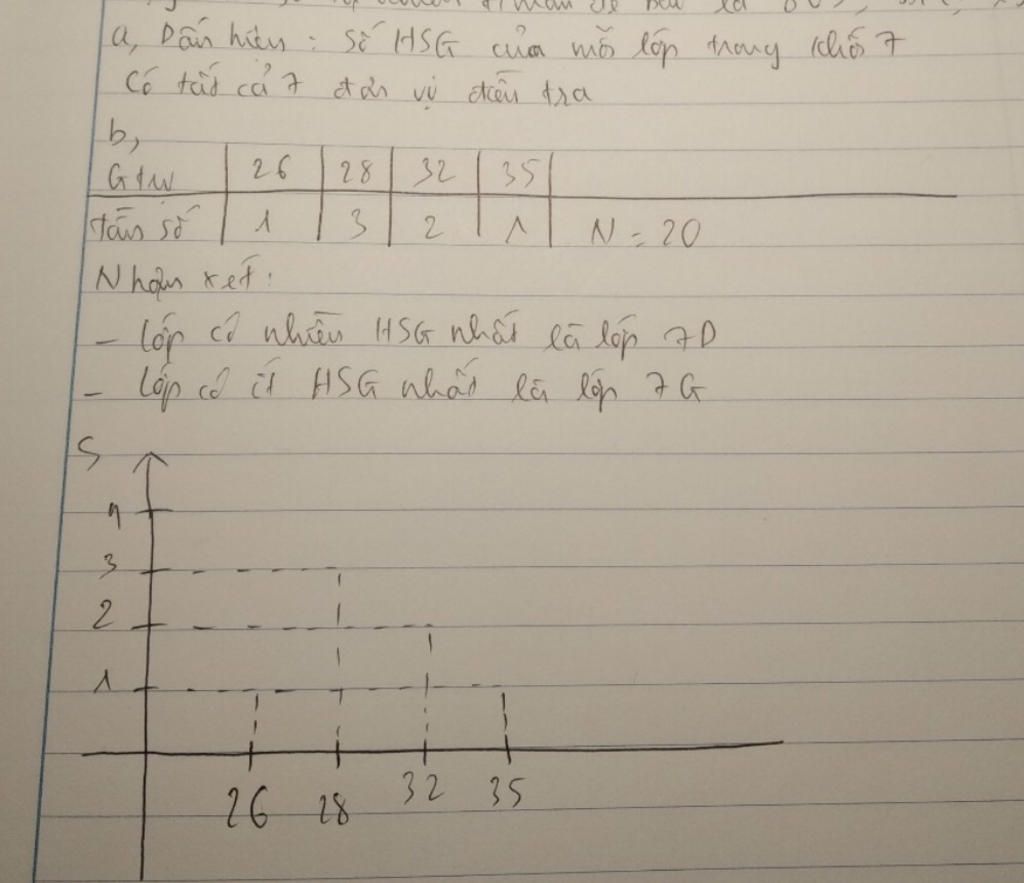 a, Dấu hiệu : Số HSG của mỗi lớp trong khối 7
Có tất cả 7 đơn vị điều tra
b,
Gtrị | 26 | 28 | 32 | 35 |
tần số | 1 | 3 | 2 | 1 | N = 20
Nhận xét:
- Lớp có nhiều HSG nhất là lớp 7D
- Lớp có ít HSG nhất là lớp 7G
S
4
3
2
1
26 28 32 35